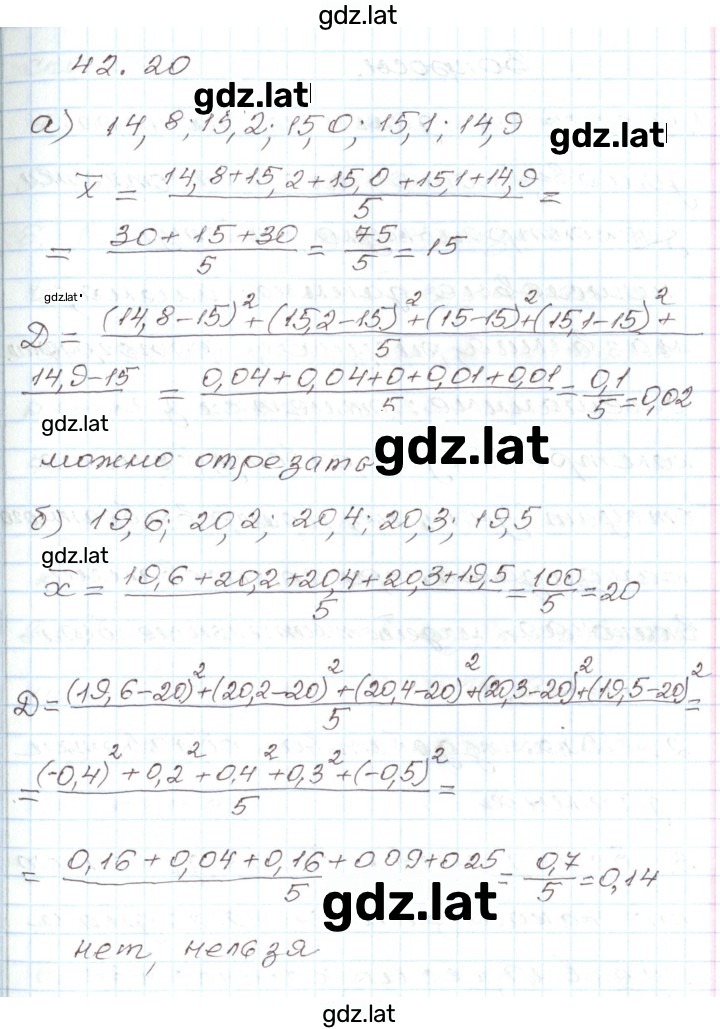 gdz.lat
42.20
gdz.lat
а) 14,8; 15,2; 15,0; 15,1; 14,9
gdz.lat
x̅ = (14,8+15,2+15,0+15,1+14,9)/5 =
= (30+15+30)/5 = 75/5 = 15
gdz.lat
D = ((14,8-15)²+(15,2-15)²+(15-15)²+(15,1-15)²+)/5
14,9-15 = (0,04+0,04+0+0,01+0,01)/5 = 0,1/5 = 0,02
gdz.lat
можно отрезать
gdz.lat
б) 19,6; 20,2; 20,4; 20,3; 19,5
gdz.lat
x̅ = (19,6+20,2+20,4+20,3+19,5)/5 = 100/5 = 20
D = ((19,6-20)²+(20,2-20)²+(20,4-20)²+(20,3-20)²+(19,5-20)²)/5 =
= ((-0,4)²+0,2²+0,4²+0,3²+(-0,5)²)/5 =
= (0,16+0,04+0,16+0 09+0 25)/5 = 0,7/5 = 0,14
gdz.lat
нет, нельзя
gdz.lat